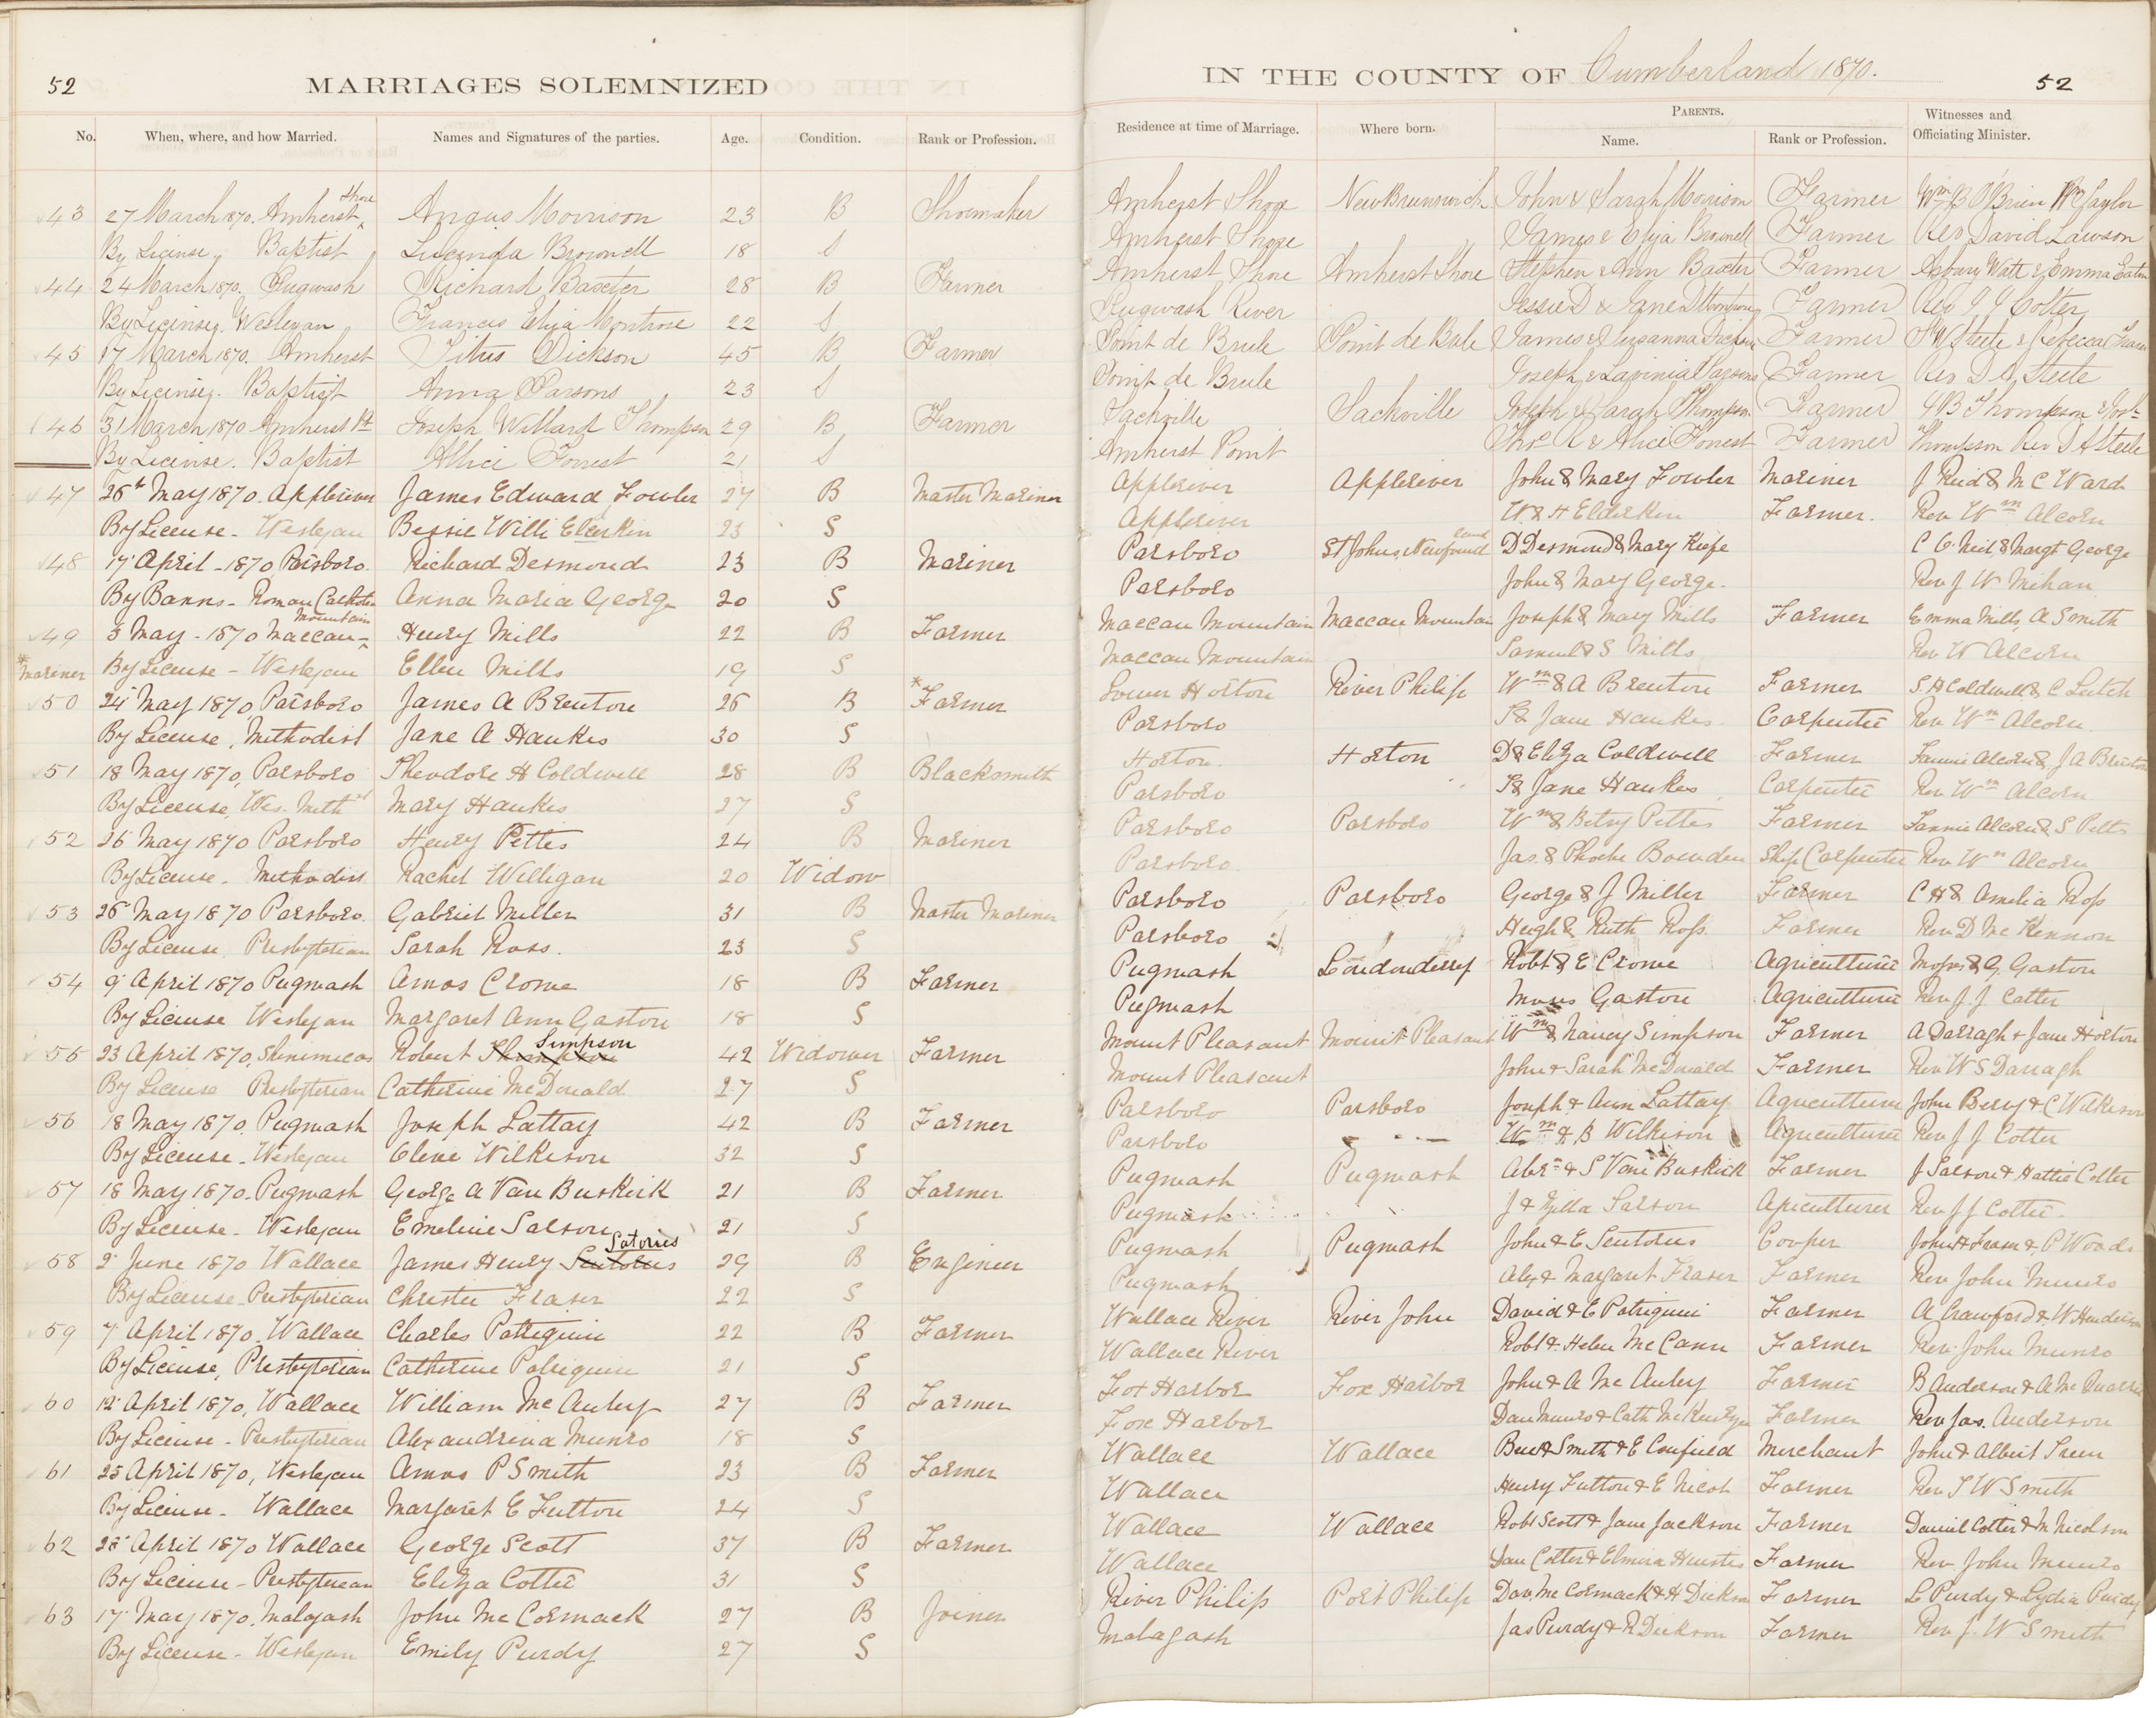 52 MARRIAGES SOLEMNIZED IN THE COUNTY OF Cumberland 1870. 52
No. When, where, and how Married. Names and Signatures of the parties. Age. Condition. Rank or Profession. Residence at time of Marriage. Where born. PARENTS. Name. Rank or Profession. Witnesses and Officiating Minister.
43 27 March 1870. Amherst Shore Angus Morrison 23 B Shoemaker Amherst Shore New Brunswick John & Sarah Morrison Farmer Wm B O'Brien Wm Taylor
By License, Baptist Lucinda Brownell 18 S Amherst Shore James & Eliza Brownell Farmer Rev David Lawson
44 24 March 1870. Pugwash Richard Baxter 28 B Farmer Amherst Shore Amherst Shore Stephen & Ann Baxter Farmer Asbury Watt & Emma Eaton
By License, Wesleyan Francis Eliza Montrose 22 S Pugwash River Farmer Rev J J Colter
45 17 March 1870. Amherst Titus Dickson 45 B Farmer Point de Brule Point de Bule James & Susanna Farmer
By License. Baptist Anna Parsons 23 S Point de Brule Joseph & Lavinia Parsons Farmer Rev D A Steele
46 31 March 1870 Amherst Pt Joseph Willard Thompson 29 B Farmer Sackville Sackville Joseph & Sarah Thompson Farmer
By License. Baptist Allice Forrest 21 S Amherst Point Thos & Alice Forrest Farmer Thompson Rev D A Steele
47 26th May 1870. Appleriver James Edward Fowler 27 B Master Mariner Appleriver Appleriver John & Mary Fowler Mariner J Reid & M C Ward
By License - Wesleyan Bessie Willi Elderkin 23 S Appleriver W & H Elderkin Farmer. Rev Wm Alcorn
48 17 April - 1870 Parsboro. Richard Desmond 23 B Mariner Parsboro St Johns, Newfoundland D Desmond & Mary Kiefe C C. Neil & Margt George
By Banns - Roman Catholic Anna Maria George 20 S Parsboro John & Mary George. Rev J W Mihan
49 3 May - 1870 Maccan Mountain Henry Mills 22 B Farmer Maccan Mountain Maccan Mountain Joseph & Mary Mills Farmer Emma Mills, A Smith
* Mariner By License - Wesleyan Ellen Mills 19 S Maccan Mountain Samuel & S Mills Rev W Alcorn
50 24 May 1870, Parsboro James A Brenton 26 B * Farmer Lower Horton River Philip Wm & A Brenton Farmer S. H Coldwell & C Leitch
By License, Methodist Jane A Hawkes 30 S Parsboro S & Jane Hawkes Carpenter Rev Wm Alcorn
51 18 May 1870, Parsboro Theodore H Coldwell 28 B Blacksmith Horton. Horton D & Eliza Coldwell Farmer Fannie Alcorn & J A Brenton
By License, Wes. Meth Mary Hawkes 27 S Parsboro S & Jane Hawkes Carpenter Rev Wm Alcorn
52 26 May 1870 Parsboro Henry Pettis 24 B Mariner Parsboro Parsboro Wm & Betsy Pettis Farmer Fannie Alcorn & S Pettis
By License - Methodist Rachel Willigan 20 Widow Parsboro. Jas. & Phoebe Bowden Ship Carpenter Rev Wm Alcorn
53 26 May 1870 Parsboro. Gabriel Miller 31 B Master Mariner Parsboro Parsboro George & J Miller Farmer C H & Amelia Ross
By License, Presbyterian Sarah Ross. 23 S Parsboro Hugh & Ruth Ross. Farmer Rev D McKennon
54 9 April 1870 Pugwash Amos Crome 18 B Farmer Pugwash Londonderry Robt & E Crome Agriculturer Moses & G. Gaston
By License Wesleyan Margaret Ann Gaston 18 S Pugwash Moses Gaston Agriculturer Rev J. J Cotter
55 23 April 1870, Shinimicas Robert Simpson 42 Widower Farmer Mount Pleasant Mount Pleasant Wm & Nancy Simpson Farmer A Darragh & Jane Horton
By License Presbyterian Catherine McDonald 27 S Mount Pleasant John & Sarah McDonald Farmer Rev W S Darragh
56 18 May 1870, Pugwash Joseph Lattay 42 B Farmer Parsboro Parsboro Joseph & Ann Lattay Agriculturer John Bery & C Wilkeson
By License - Wesleyan Clene Wilkeson 32 S Parsboro Wm & B Wilkison Agriculturer Rev J J Cotter
57 18 May 1870. Pugwash George A Van Buskirk 21 B Farmer Pugwash Pugwash Abrm & S Van Buskirk Farmer J Salson & Hattie Cotter
By License - Wesleyan Emeline Salson 21 S Pugwash J & Zilla Salson Agriculturer Rev J J Cotter
58 2 June 1870 Wallace James Henry Sentorus Satories 29 B Engineer Pugwash Pugwash John & E Sentorus Cooper John H Fraser & P Woods
By License - Presbyterian Christie Fraser 22 S Pugwash Alex & Margaret Fraser Farmer Rev John Munro
59 7 April 1870. Wallace Charles Patriquin 22 B Farmer Wallace River River John David & E Patriquin Farmer A Crawford & W Henderson
By License, Presbyterian Catherine Patriquin 21 S Wallace River Robt & Helen McCann Farmer Rev. John Munro
60 12 April 1870, Wallace William McAuley 27 B Farmer Fox Harbor Fox Harbor John & A McAuley Farmer B Anderson & A
By License - Presbyterian Alexandrina Munro 18 S Fox Harbor Dan Munro & Cath McKenzie Farmer Rev Jas. Anderson
61 25 April 1870, Wesleyan Amos P Smith 23 B Farmer Wallace Wallace Smith & E Canfield Merchant John & Albert Treen
By License - Wallace Margaret E Fulton 24 S Wallace Henry Fulton & E Nicol Farmer Rev J W Smith
62 28 April 1870 Wallace George Scott 37 B Farmer Wallace Wallace Robt Scott & Jane Jackson Farmer Daniel Cotter & M Nicolson
By License - Presbyterian Eliza Cotter 31 S Wallace Dan Cotter & Elmira Heustis Farmer Rev John Munro
63 17 May 1870, Malagash John McCormack 27 B Joiner River Philip Port Philip Dav. McCormack & H Dickson Farmer L Purdy & Lydia Purdy
By License - Wesleyan Emily Purdy 27 S Malagash Jas Purdy & R Dickson Farmer Rev J. W Smith